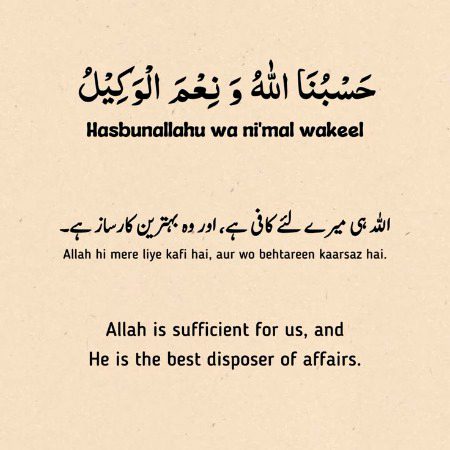 حَسْبُنَا اللهُ وَ نِعْمَ الْوَكِيْلُ
Hasbunallahu wa ni'mal wakeel
اللہ ہی میرے لئے کافی ہے، اور وہ بہترین کارساز ہے۔
Allah hi mere liye kafi hai, aur wo behtareen kaarsaz hai.
Allah is sufficient for us, and
He is the best disposer of affairs.